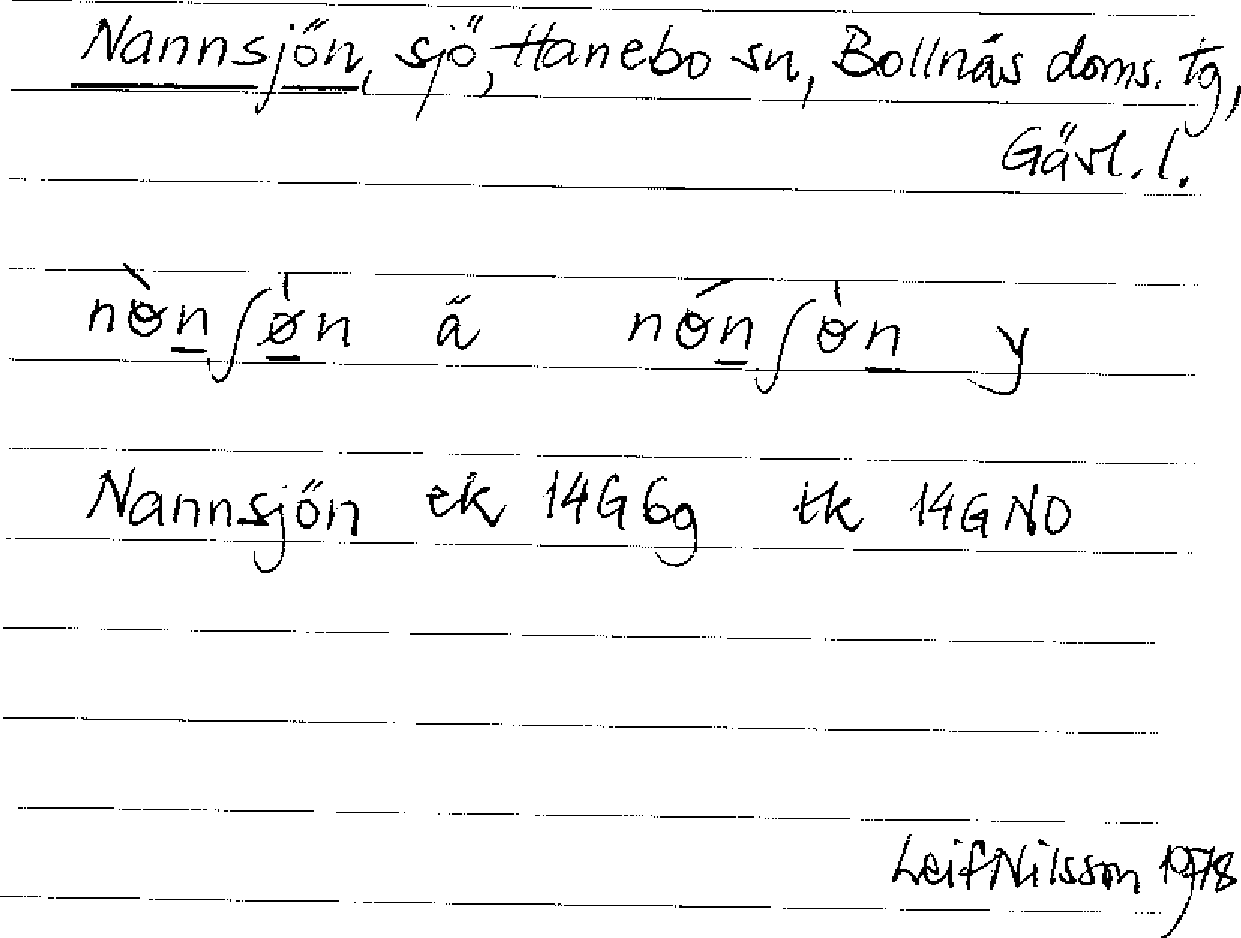 Nannsjön, sjö, Hanebo sn, Bollnäs doms. tg,
Gävl. l.
nɵ̀nʃɵ̀n ã nɵ́nʃɵ̀n y
Nannsjön ek 14G6g tk 14GNO
Leif Nilsson 1978